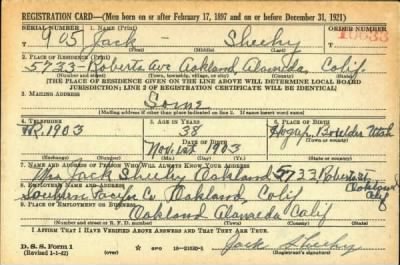 REGISTRATION CARD—(Men born on or after February 17, 1897 and on or before December 31, 1921)
SERIAL NUMBER 1. NAME (Print) ORDER NUMBER
905 Jack Sheehy
(First) (Middle) (Last)
2. PLACE OF RESIDENCE (Print)
5733 - Roberts Ave Oakland Alameda, Calif
(Number and street) (Town, township, village, or city) (County) (State)
[THE PLACE OF RESIDENCE GIVEN ON THE LINE ABOVE WILL DETERMINE LOCAL BOARD
JURISDICTION; LINE 2 OF REGISTRATION CERTIFICATE WILL BE IDENTICAL]
3. MAILING ADDRESS
Same
(Mailing address if other than place indicated on line 2. If same insert word same)
4. TELEPHONE 5. AGE IN YEARS 6. PLACE OF BIRTH
1903 38
DATE OF BIRTH Utah
(Town or county)
Nov 1st 1903
(Exchange) (Number) (Mo.) (Day) (Yr.) (State or country)
7. NAME AND ADDRESS OF PERSON WHO WILL ALWAYS KNOW YOUR ADDRESS
Mrs Jack Sheehy Oakland 5733 Roberts St
Oakland Calif
8. EMPLOYER'S NAME AND ADDRESS
Southern Pacific Co Oakland, Calif
9. PLACE OF EMPLOYMENT OR BUSINESS
Oakland Alameda Calif
(Number and street or R. F. D. number) (Town) (County) (State)
I AFFIRM THAT I HAVE VERIFIED ABOVE ANSWERS AND THAT THEY ARE TRUE.
D. S. S. Form 1
(Revised 1-1-42) (over) GPO Jack Sheehy
(Registrant's signature)